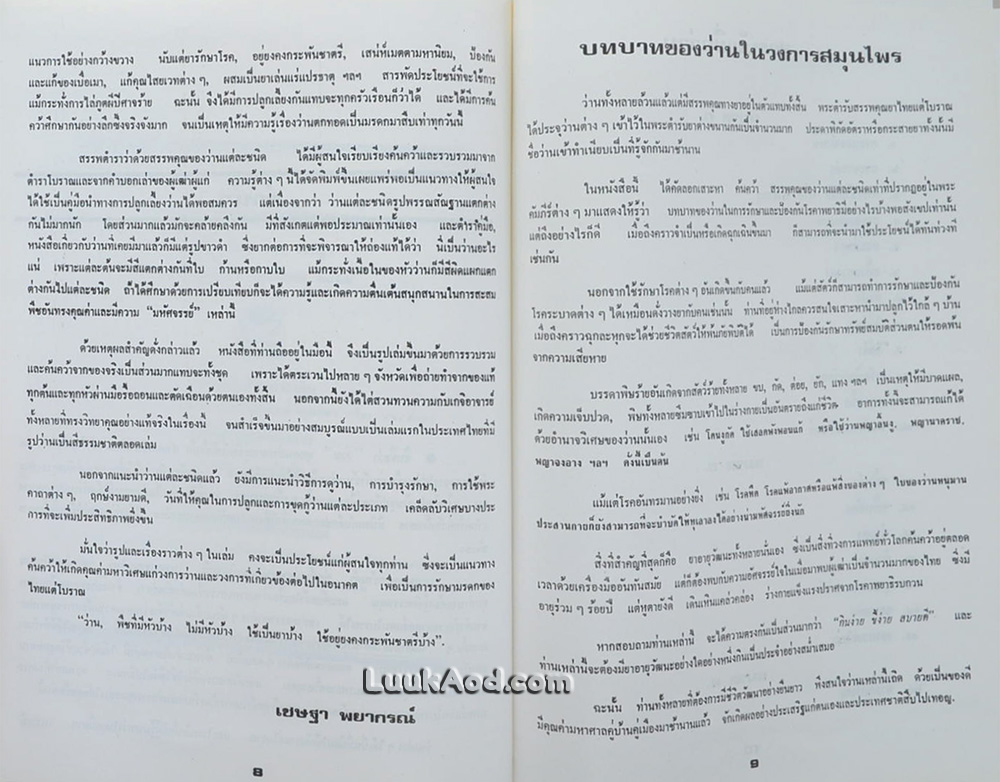 แนวการใช้อย่างกว้างขวาง นับแต่ยารักษาโรค, อยู่ยงคงกระพันชาตรี, เสน่ห์เมตตามหานิยม, ป้องกัน
และแก้ของเบื่อเมา, แก้คุณไสยเวทต่าง ๆ, ผสมเป็นยาเล่นแร่แปรธาตุ ฯลฯ สารพัดประโยชน์ที่จะใช้การ
แม้กระทั่งการไล่ภูตผีปีศาจร้าย ฉะนั้น จึงได้มีการปลูกเลี้ยงกันแทบจะทุกครัวเรือนก็ว่าได้ และได้มีการค้น
คว้าศึกษากันอย่างลึกซึ้งจริงจังมาก จนเป็นเหตุให้มีความรู้เรื่องว่านตกทอดเป็นมรดกมาสืบเท่าทุกวันนี้
สรรพตำราว่าด้วยสรรพคุณของว่านแต่ละชนิด ได้มีผู้สนใจเรียบเรียงค้นคว้าและรวบรวมมาจาก
ตำราโบราณและจากคำบอกเล่าของผู้เฒ่าผู้แก่ ความรู้ต่าง ๆ นี้ได้จัดพิมพ์ขึ้นเผยแพร่พอเป็นแนวทางให้ผู้สนใจ
ได้ใช้เป็นคู่มือนำทางการปลูกเลี้ยงว่านได้พอสมควร แต่เนื่องจากว่า ว่านแต่ละชนิดรูปพรรณสัณฐานแตกต่าง
กันไม่มากนัก โดยส่วนมากแล้วมักจะคล้ายคลึงกัน มีที่สังเกตแต่พอประมาณเท่านั้นเอง และตำราคู่มือ,
หนังสือเกี่ยวกับว่านที่เคยมีมาแล้วก็มีแต่รูปขาวดำ ซึ่งยากต่อการที่จะพิจารณาให้ถ่องแท้ได้ว่า นี่เป็นว่านอะไร
แน่ เพราะแต่ละต้นจะมีสีแตกต่างกันที่ใบ ก้านหรือกาบใบ แม้กระทั่งเนื้อในของหัวว่านก็มีสีผิดแผกแตก
ต่างกันไปแต่ละชนิด ถ้าได้ศึกษาด้วยการเปรียบเทียบก็จะได้ความรู้และเกิดความตื่นเต้นสนุกสนานในการสะสม
พืชอันทรงคุณค่าและมีความ “มหัศจรรย์” เหล่านี้
ด้วยเหตุผลสำคัญดังกล่าวแล้ว หนังสือที่ท่านถืออยู่ในมือนี้ จึงเป็นรูปเล่มขึ้นมาด้วยการรวบรวม
และค้นคว้าจากของจริงเป็นส่วนมากแทบจะทั้งชุด เพราะได้ตระเวนไปหลาย ๆ จังหวัดเพื่อถ่ายทำจากของแท้
ทุกต้นและทุกหัวผ่านมือรื้อถอนและตัดเฉือนด้วยตนเองทั้งสิ้น นอกจากนี้ยังได้ไต่สวนทวนความกับเกจิอาจารย์
ทั้งหลายที่ทรงวิทยาคุณอย่างแท้จริงในเรื่องนี้ จนสำเร็จขึ้นมาอย่างสมบูรณ์แบบเป็นเล่มแรกในประเทศไทยที่มี
รูปว่านเป็นสีธรรมชาติตลอดเล่ม
นอกจากแนะนำว่านแต่ละชนิดแล้ว ยังมีการแนะนำวิธีการดูว่าน, การบำรุงรักษา, การใช้พระ
คาถาต่าง ๆ, ฤกษ์งามยามดี, วันที่ให้คุณในการปลูกและการขุดกู้ว่านแต่ละประเภท เคล็ดลับวิเศษบางประ
การที่จะเพิ่มประสิทธิภาพยิ่งขึ้น
มั่นใจว่ารูปและเรื่องราวต่าง ๆ ในเล่ม คงจะเป็นประโยชน์แก่ผู้สนใจทุกท่าน ซึ่งจะเป็นแนวทาง
ค้นคว้าให้เกิดคุณค่ามหาวิเศษแก่วงการว่านและวงการที่เกี่ยวข้องต่อไปในอนาคต เพื่อเป็นการรักษามรดกของ
ไทยแต่โบราณ
“ว่าน, พืชที่มีหัวบ้าง ไม่มีหัวบ้าง ใช้เป็นยาบ้าง ใช้อยู่ยงคงกระพันชาตรีบ้าง”.
เชษฐา พยากรณ์
8
บทบาทของว่านในวงการสมุนไพร
ว่านทั้งหลายล้วนแล้วแต่มีสรรพคุณทางยาอยู่ในตัวแทบทั้งสิ้น พระตำรับสรรพคุณยาไทยแต่โบราณ
ได้ประจุว่านต่าง ๆ เข้าไว้ในพระตำรับยาต่างขนานกันเป็นจำนวนมาก ประดาพิกัดอัตราหรือกระสายยาทั้งนั้นมี
ชื่อว่านเข้าทำเนียบเป็นที่รู้จักกันมาช้านาน
ในหนังสือนี้ ได้คัดลอกเสาะหา ค้นคว้า สรรพคุณของว่านแต่ละชนิดเท่าที่ปรากฏอยู่ในพระ
คัมภีร์ต่าง ๆ มาแสดงให้รู้ว่า บทบาทของว่านในการรักษาและป้องกันโรคพยาธิมีอย่างไรบ้างพอสังเขปเท่านั้น
แต่ถึงอย่างไรก็ดี เมื่อถึงคราวจำเป็นหรือเกิดฉุกเฉินขึ้นมา ก็สามารถที่จะนำมาใช้ประโยชน์ได้ทันท่วงที
เช่นกัน
นอกจากใช้รักษาโรคต่าง ๆ อันเกิดขึ้นกับคนแล้ว แม้แต่สัตว์ก็สามารถทำการรักษาและป้องกัน
โรคระบาดต่าง ๆ ได้เหมือนดั่งวางยากับคนเช่นนั้น ท่านที่อยู่ห่างไกลควรสนใจเสาะหานำมาปลูกไว้ใกล้ ๆ บ้าน
เมื่อถึงคราวฉุกละหุกจะได้ช่วยชีวิตสัตว์ให้พ้นภัยพิบัติได้ เป็นการป้องกันรักษาทรัพย์สมบัติส่วนตนให้รอดพ้น
จากความเสียหาย
บรรดาพิษร้ายอันเกิดจากสัตว์ร้ายทั้งหลาย ขบ, กัด, ต่อย, ยัก, แทง ฯลฯ เป็นเหตุให้มีบาดแผล,
เกิดความเจ็บปวด, พิษทั้งหลายซึมซาบเข้าไปในร่างกายเป็นอันตรายถึงแก่ชีวิต. อาการทั้งนี้จะสามารถแก้ได้
ด้วยอำนาจวิเศษของว่านนั้นเอง เช่น โดนงูกัด ใช้เสลดพังพอนแก้ หรือใช้ว่านพญาลิ้นงู, พญานาคราช,
พญาจงอาง ฯลฯ ดั่งนี้เป็นต้น
แม้แต่โรคอันทรมานอย่างยิ่ง เช่น โรคหืด โรคแพ้อากาศหรือแพ้สิ่งของต่าง ๆ ใบของว่านหนุมาน
ประสานกายก็ยังสามารถที่จะบำบัดให้ทุเลาลงได้อย่างน่ามหัศจรรย์ยิ่งนัก
สิ่งที่สำคัญที่สุดก็คือ ยาอายุวัฒนะทั้งหลายนั่นเอง ซึ่งเป็นสิ่งที่วงการแพทย์ทั่วโลกค้นคว้าอยู่ตลอด
เวลาด้วยเครื่องมืออันทันสมัย แต่ก็ต้องพบกับความอัศจรรย์ใจในเมื่อมาพบผู้เฒ่าเป็นจำนวนมากของไทย ซึ่งมี
อายุร่วม ๆ ร้อยปี แต่หูตายังดี เดินเหินแคล่วคล่อง ร่างกายแข็งแรงปราศจากโรคพยาธิรบกวน
หากสอบถามท่านเหล่านี้ จะได้ความตรงกันเป็นส่วนมากว่า “กินง่าย ขี้ง่าย สบายดี” และ
ท่านเหล่านี้จะต้องมียาอายุวัฒนะอย่างใดอย่างหนึ่งกินเป็นประจำอย่างสม่ำเสมอ
ฉะนั้น ท่านทั้งหลายที่ต้องการมีชีวิตวัฒนาอย่างยืนยาว พึงสนใจว่านเหล่านี้เถิด ด้วยเป็นของดี
มีคุณค่ามหาศาลคู่บ้านคู่เมืองมาช้านานแล้ว จักเกิดผลอย่างประเสริฐแก่ตนเองและประเทศชาติสืบไปเทอญ.
9
LuukAod.com